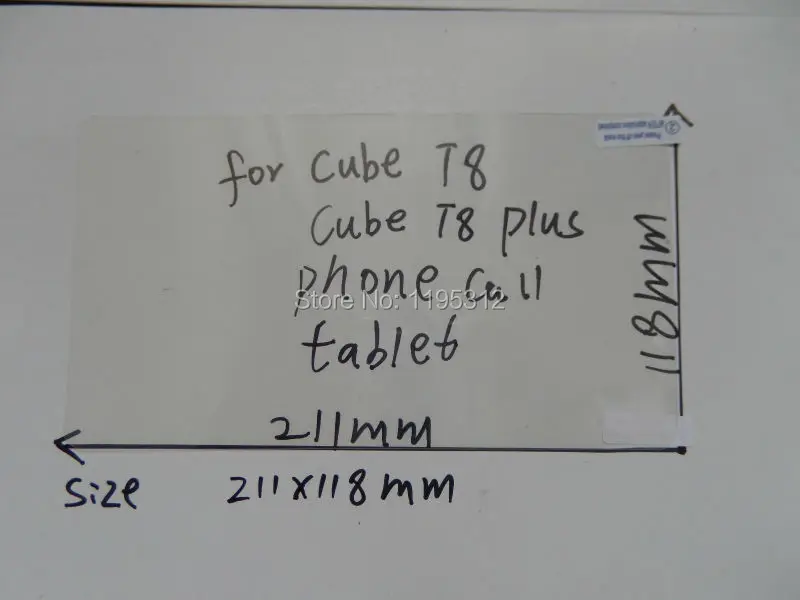 for Cube T8
Cube T8 plus
phone call
Store No: 1195312
tablet
118mm
211mm
Size 211x118mm